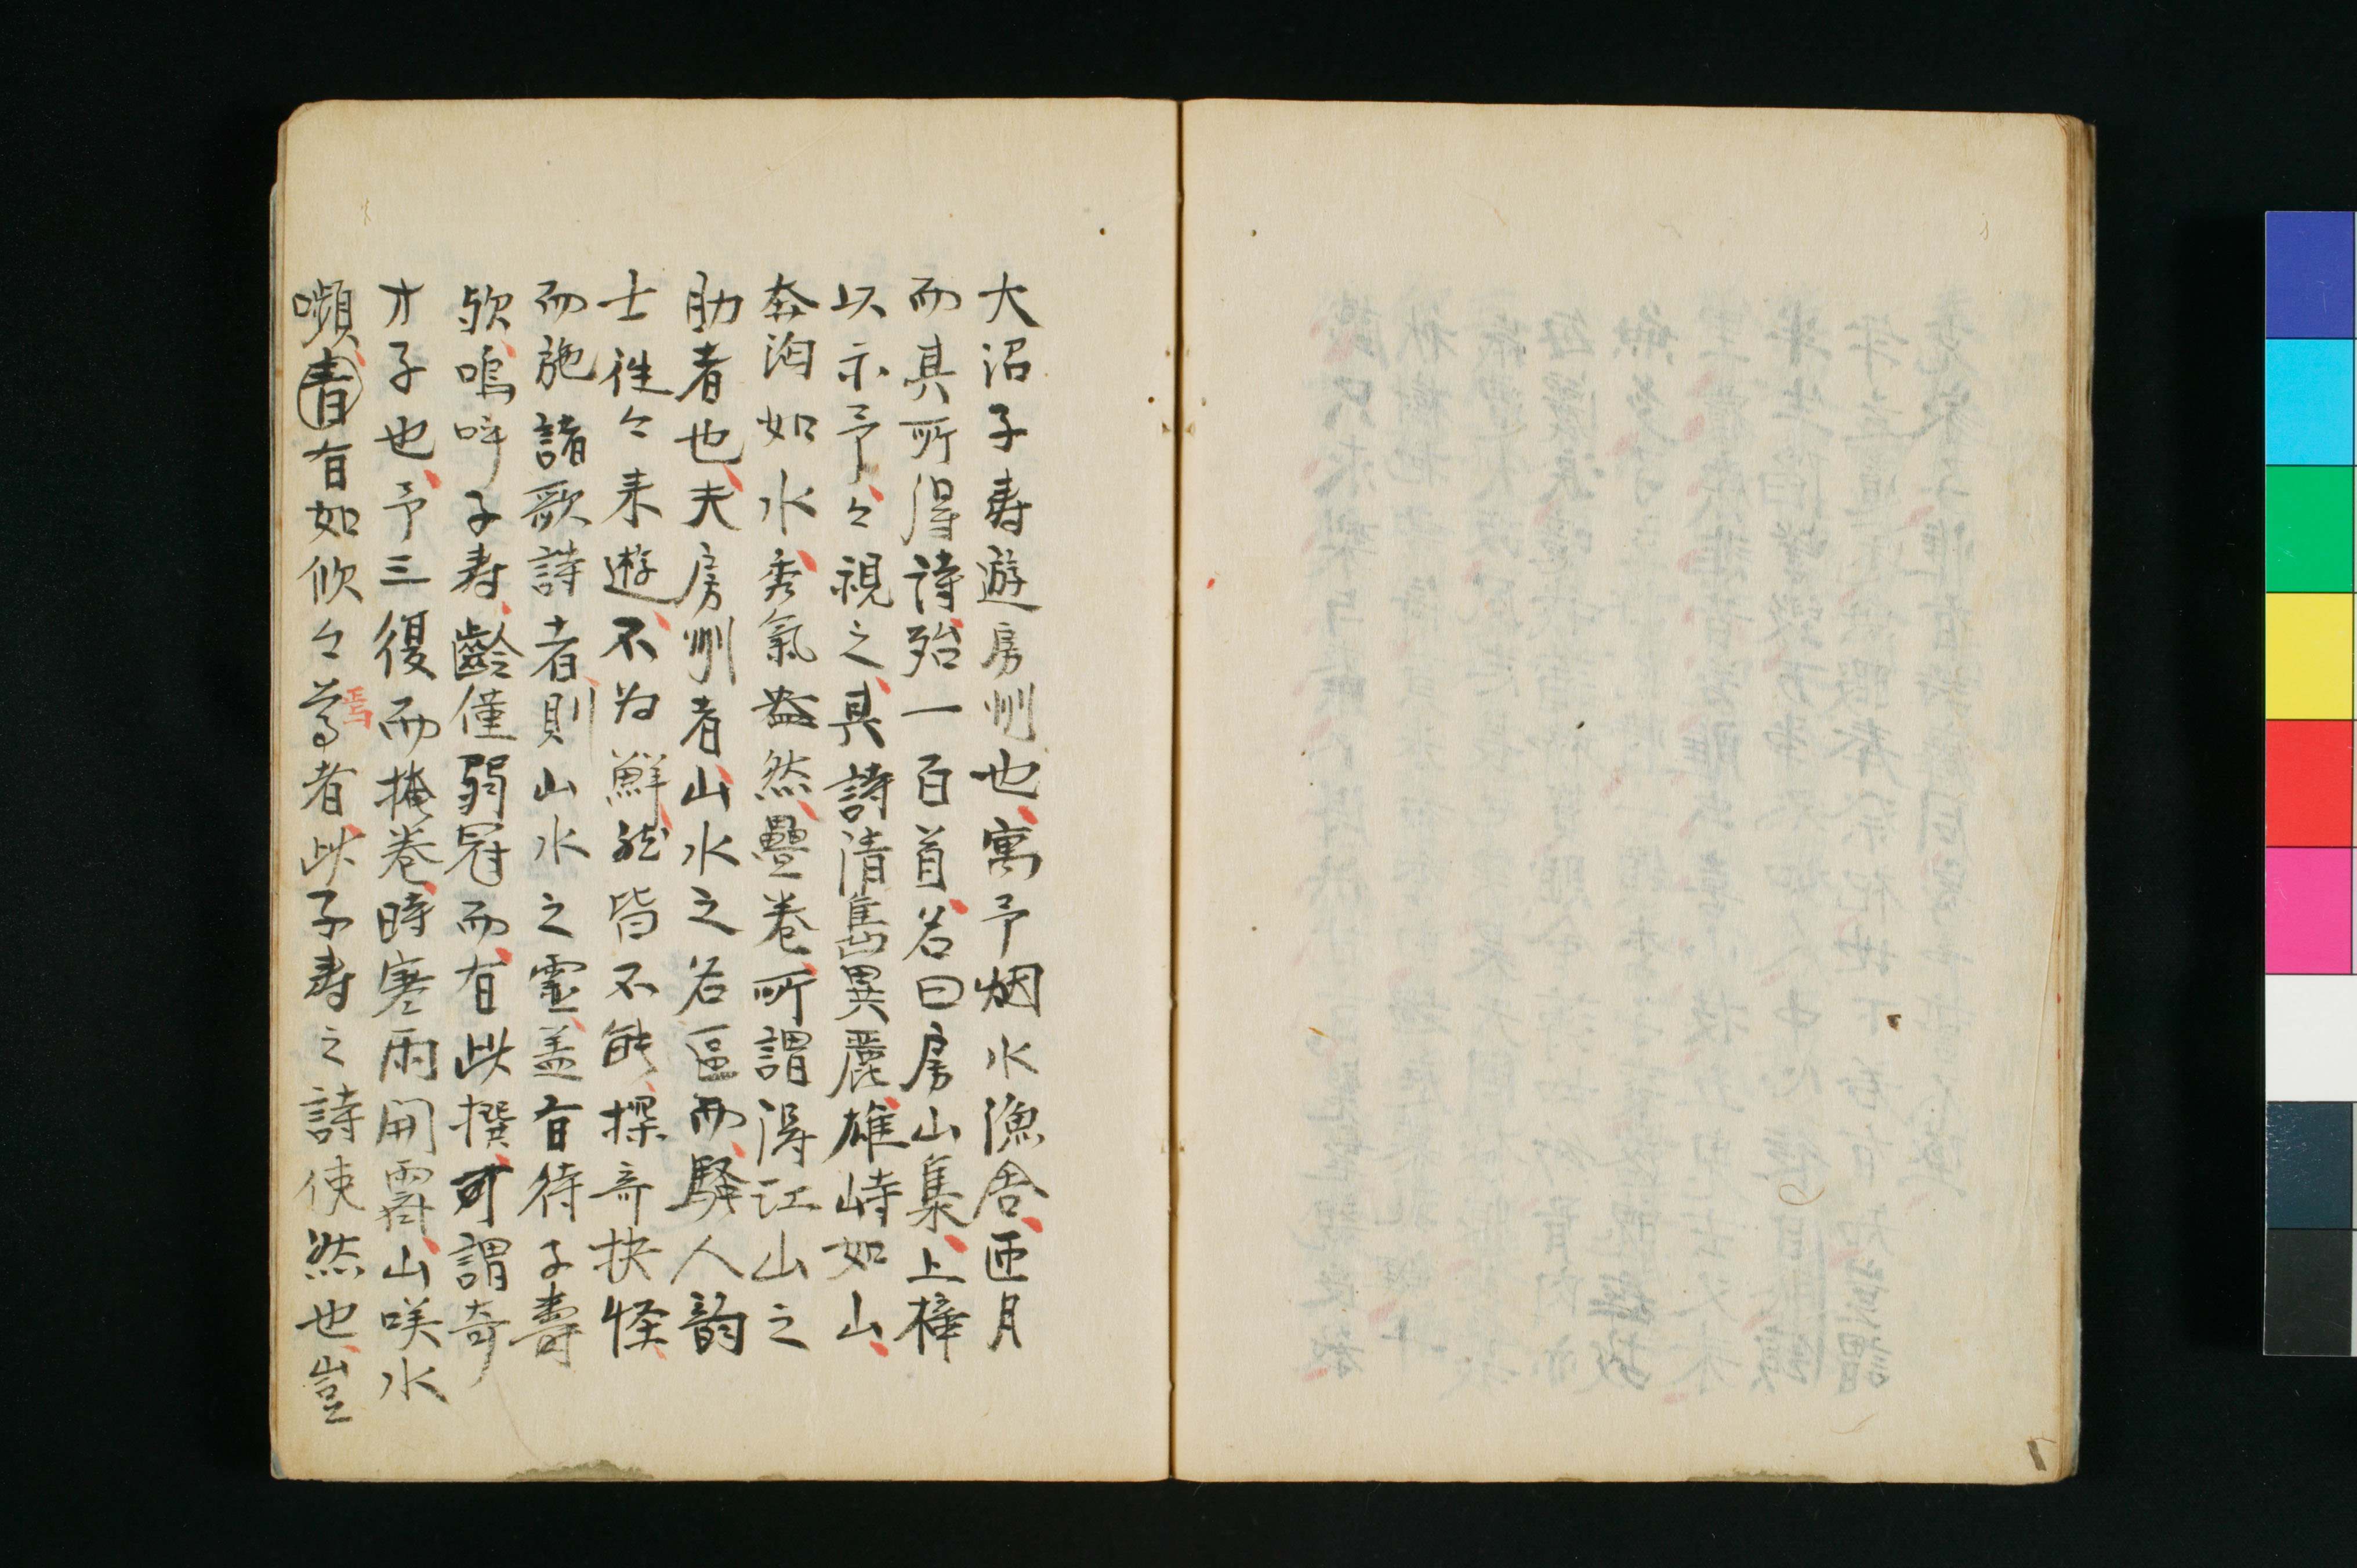 大沼子寿遊房州也寓予烟水漁舎匝月
而其所得詩殆一百首名曰房山集上梓
以示予々視之其詩清雋異麗雄峙如山
奔洶如水秀氣盎然疊巻所謂得江山之
助者也夫房州者山水之名區而騒人韵
士往々来遊不为鮮然皆不能探奇抉怪
而施諸歌詩者則山水之靈盖有待子壽
欤嗚呼子寿齡僅弱冠而有此撰可謂奇
才子也予三復而掩巻時寒雨開霽山咲水
嚬有如欣々焉者此子寿之詩使然也豈